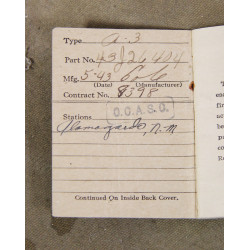 Type A-3
Part No. 43J26404
Mfg. 5-43 Cole
(Date) (Manufacturer)
Contract No. 8398
O.C.A.S.O.
Stations
Alamogordo, N-M
Continued On Inside Back Cover.